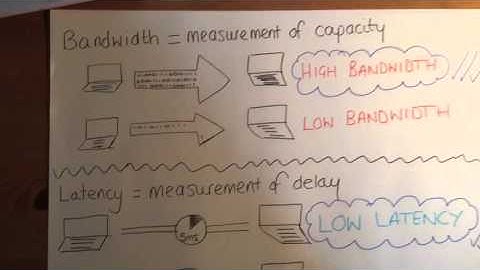 Bandwidth = measurement of capacity
HIGH BANDWIDTH
LOW BANDWIDTH
Latency = measurement of delay
5ms
LOW LATENCY